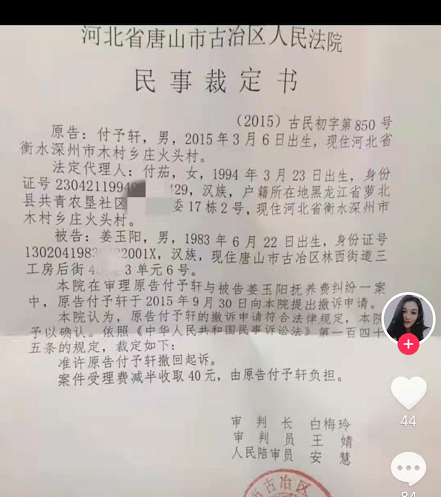 河北省唐山市古冶区人民法院
民事裁定书
(2015)古民初字第850号
原告:付予轩,男,2015年3月6日出生,现住河北省
衡水深州市木村乡庄火头村。
法定代理人:付茄,女,1994年3月23日出生,身份
证号230421199429,汉族,户籍所在地黑龙江省萝北
县共青农垦社区委17栋2号,现住河北省衡水深州市
木村乡庄火头村。
被告:姜玉阳,男,1983年6月22日出生,身份证号
1302041982001X,汉族,现住唐山市古冶区林西街道三
工房后街43单元6号。
本院在审理原告付予轩与被告姜玉阳抚养费纠纷一案
中,原告付予轩于2015年9月30日向本院提出撤诉申请。
本院认为,原告付予轩的撤诉申请符合法律规定,本院
予以确认。依照《中华人民共和国民事诉讼法》第一百四十
五条的规定,裁定如下:
准许原告付予轩撤回起诉。
案件受理费减半收取40元,由原告付予轩负担。
审判长 白梅玲
审判员 王婧
人民陪审员 安慧
古冶区
44
84